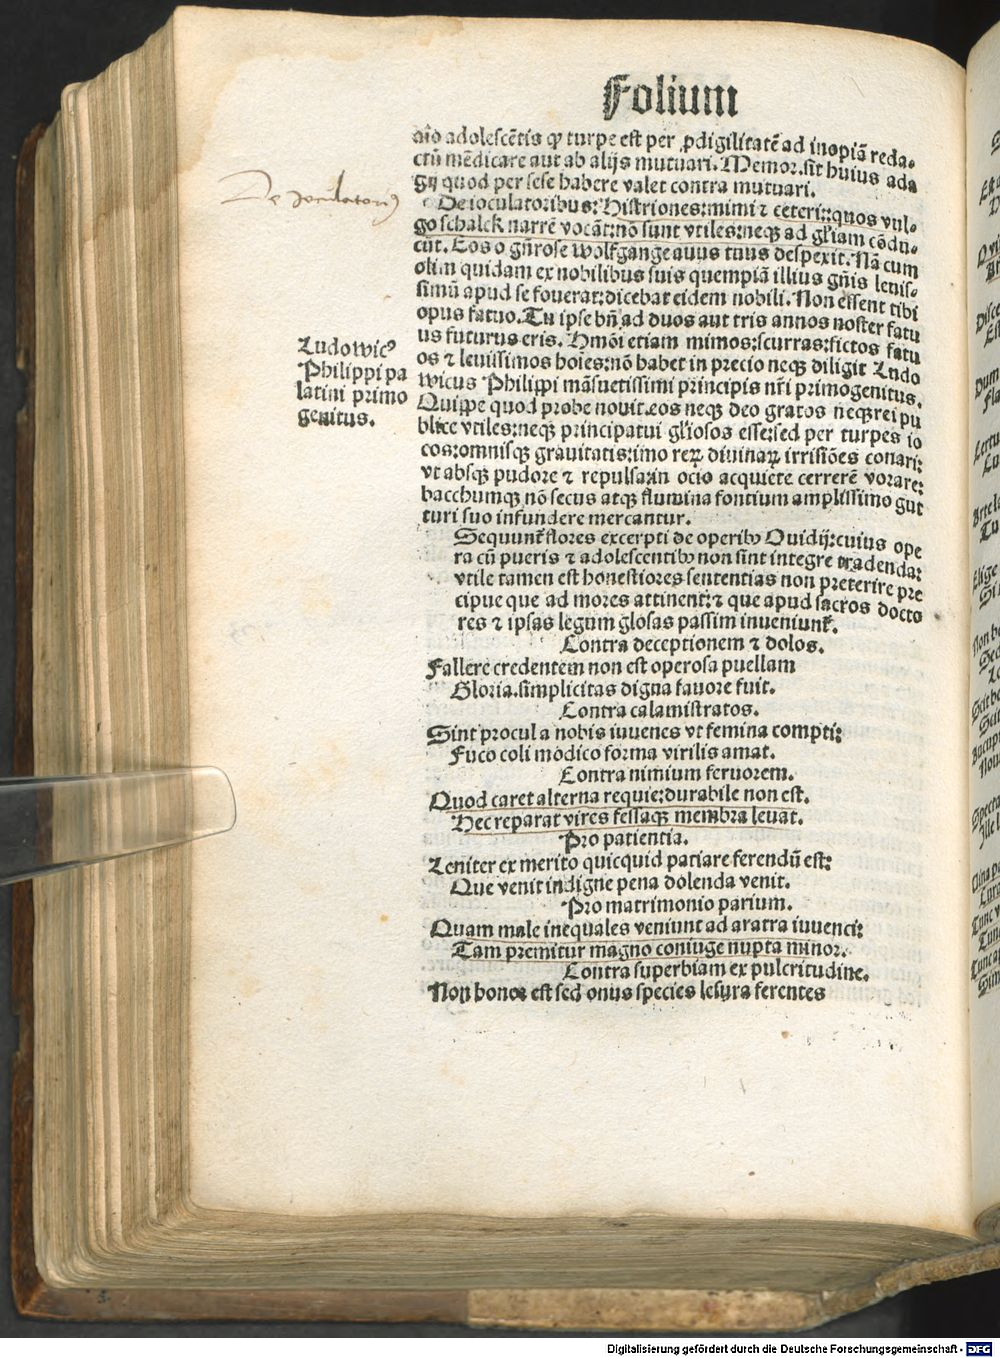 Folium
aĩo adolescẽtis qꝫ turpe est per ꝓdigilitatẽ ad inopiã reda⸗
ctũ mẽdicare aut ab alijs mutuari. Memor.sit huius ada
gij quod per sese habere valet contra mutuari.
De ioculatoribus: Histriones: mimi ⁊ ceteri: quos vul⸗
go schalck narrẽ vocãt: nõ sunt vtiles: neqꝫ ad gl̃iam cõdu⸗
cũt. Eos o gñrose wolfgange auus tuus despexit. Nã cum
olim quidam ex nobilibus suis quempiã illius gñis leuis⸗
simũ apud se fouerat: dicebat eidem nobili. Non essent tibi
opus fatuo. Tu ipse bñ ad duos aut tris annos noster fatu
us futurus eris. Hmõi etiam mimos: scurras: fictos fatu
os ⁊ leuissimos hoĩes: nõ habet in precio neqꝫ diligit Ludo
wicus Philippi mãsuetissimi principis nr̃i primogenitus.
Quippe quod probe nouit.eos neqꝫ deo gratos neqꝫ rei pu
blice vtiles: neqꝫ principatui gl̃iosos esse: sed per turpes io
cos: omnisqꝫ grauitatis: imo reꝝ diuinaꝝ irrisiões conari:
vt absqꝫ pudore ⁊ repulsa: in ocio acquiete cerrerẽ vorare:
bacchumqꝫ nõ secus atqꝫ flumina fontium amplissimo gut
turi suo infundere mercantur.
Sequunt̃ flores excerpti de operibꝫ Ouidij: cuius ope
ra cũ pueris ⁊ adolescentibꝫ non sint integre tradenda:
vtile tamen est honestiores sententias non preterire pre
cipue que ad mores attinent: ⁊ que apud sacros docto
res ⁊ ipsas legum glosas passim inueniunt̃.
Contra deceptionem ⁊ dolos.
Fallere credentem non est operosa puellam
Gloria.simplicitas digna fauore fuit.
Contra calamistratos.
Sint procul a nobis iuuenes vt femina compti:
Fuco coli modico forma virilis amat.
Contra nimium feruorem.
Quod caret alterna requie: durabile non est.
Hec reparat vires fessaqꝫ membra leuat.
Pro patientia.
Leniter ex merito quicquid patiare ferendũ est:
Que venit indigne pena dolenda venit.
Pro matrimonio parium.
Quam male inequales veniunt ad aratra iuuenci:
Tam premitur magno coniuge nupta minor.
Contra superbiam ex pulcritudine.
Non honor est sed onus species lesura ferentes
De ioculatoribꝰ
Ludowicꝰ
Philippi pa
latini primo
genitus.
Digitalisierung gefördert durch die Deutsche Forschungsgemeinschaft - DFG